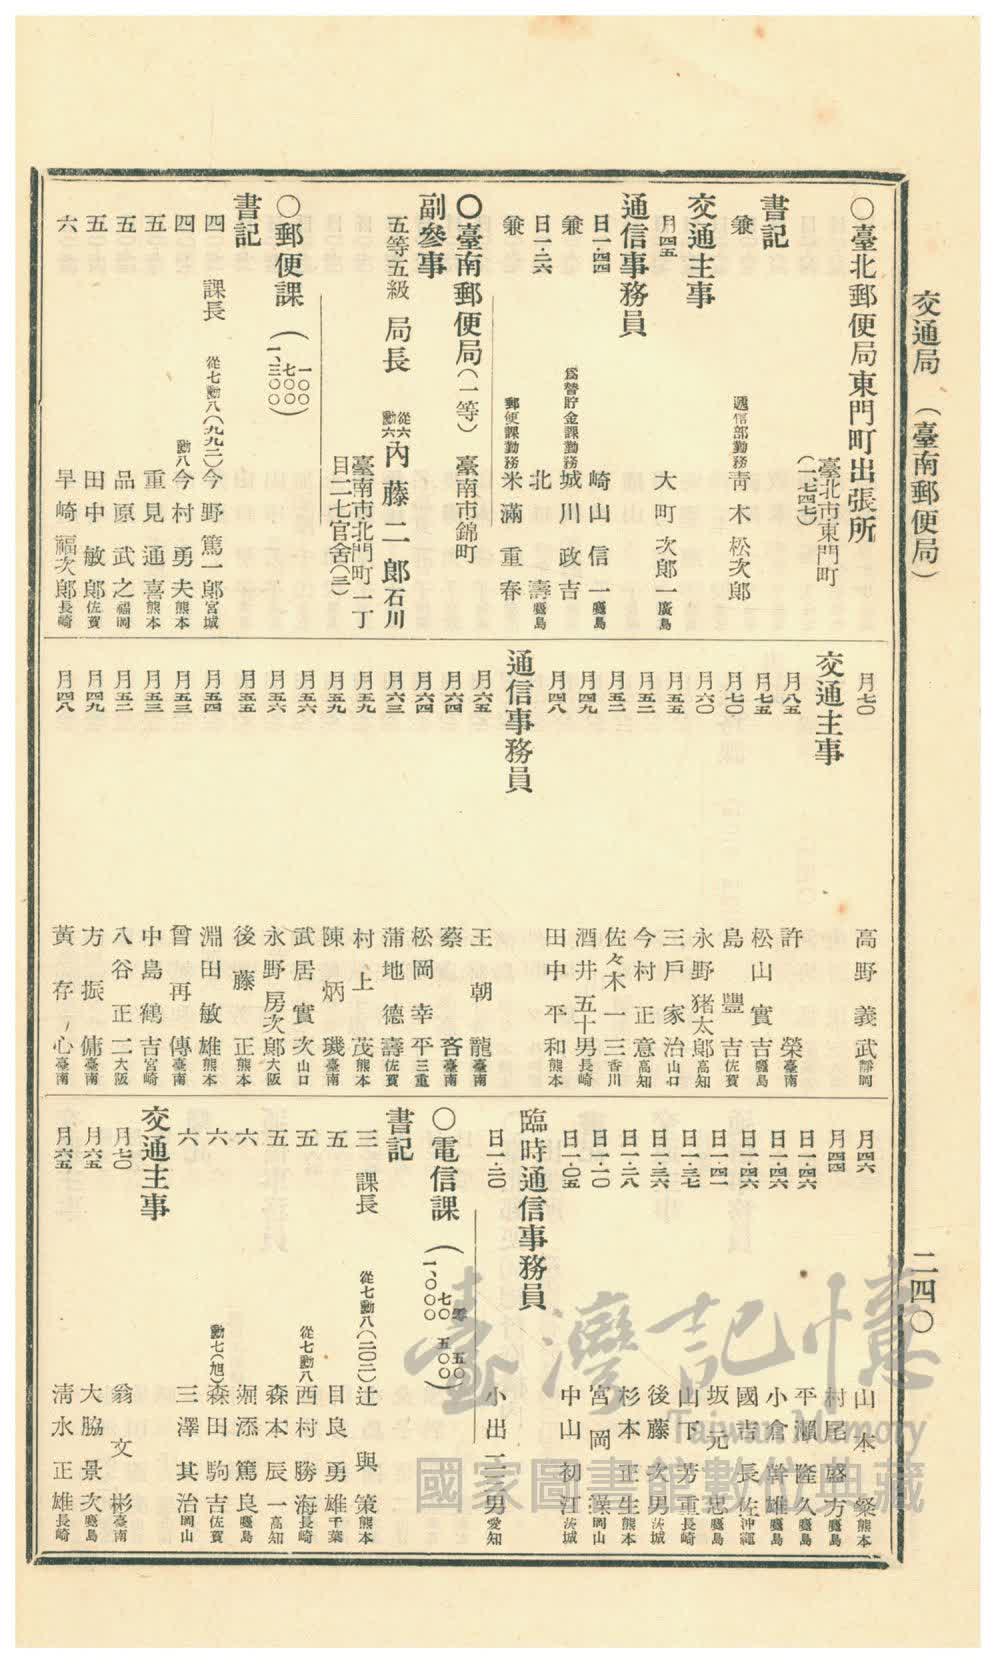 交通局（臺南郵便局）
二四〇
〇臺北郵便局東門町出張所
臺北市東門町
（一七四七）
書記
兼 遞信部勤務 靑木松次郎
交通主事
月四五 大町次郎一 廣島
通信事務員
日一・四四 崎山信一 鹿島
兼 爲替貯金課勤務 城川政吉
日一・二六 北壽 鹿島
兼 郵便課勤務 米滿重春
〇臺南郵便局（一等） 臺南市錦町
副參事
五等五級 局長 從六勳六 內藤二郎 石川
臺南市北門町一丁
目二七官舍（三）
〇郵便課（一〇〇 七〇〇 一、三〇〇）
書記
四 課長 從七勳八（九九二） 今野篤一郎 宮城
四 勳八 今村勇夫 熊本
五 重見通喜 熊本
五 品原武之 福岡
五 田中敏郞 佐賀
六 早崎福次郞 長崎
月七〇 高野義武 靜岡
交通主事
月八五 許榮 臺南
月七五 松山實吉 鹿島
月七〇 島豐吉 佐賀
月六〇 永野猪太郞 高知
月五五 三戶家治 山口
月五二 今村正意 高知
月五二 佐々木一三 香川
月四九 酒井五十男 長崎
月四八 田中平和 熊本
通信事務員
月六五 王朝龍 臺南
月六四 蔡吝 臺南
月六四 松岡幸平 三重
月六三 蒲地德壽 佐賀
月五九 村上茂 熊本
月五九 陳炳璣 臺南
月五六 武居實次 山口
月五六 永野房次郞 大阪
月五五 後藤正 熊本
月五四 淵田敏雄 熊本
月五三 曾再傳 臺南
月五三 中島鶴吉 宮崎
月五二 八谷正二 大阪
月四九 方振傭 臺南
月四八 黃存心 臺南
月四六 山本粲 熊本
月四四 村尾盛方 鹿島
日一・四六 平瀨隆久 鹿島
日一・四六 小倉幹雄 鹿島
日一・四六 國吉長佐 沖繩
日一・四一 坂元忠 鹿島
日一・三七 山下芳重 長崎
日一・三六 後藤次男 茨城
日一・二八 杉本正生 熊本
日一・二〇 宮岡渼 岡山
日一・〇五 中山初江 茨城
臨時通信事務員
日一・二〇 小出二三男 愛知
〇電信課（零 五〇 七〇 五〇〇 一、〇〇〇）
書記
三 課長 從七勳八（二〇二） 辻與策 熊本
五 目良勇雄 千葉
五 從七勳八 西村勝海 長崎
五 森本辰一 高知
六 堀添篤良 鹿島
六 勳七（旭） 森田駒吉 佐賀
六 三澤其治 岡山
交通主事
月七〇 翁文彬 臺南
月六五 大脇景次 鹿島
月六五 淸水正雄 長崎
臺灣記憶
Taiwan Memory
國家圖書館數位典藏